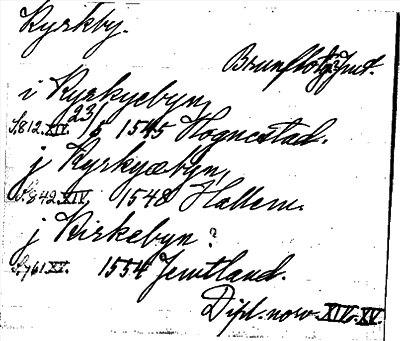 Kyrkby.
Brunflo tg Jmt.
i Kyrkyebyn,
S.812.XIV. 23/5 1545 Hognestad.
j Kyrkyæbyn,
S.842.XIV, 1548 Hallem.
j Kirkebyn?
S.761.XV. 1554 Jemtland.
Dipl. norv. XIV-XV.